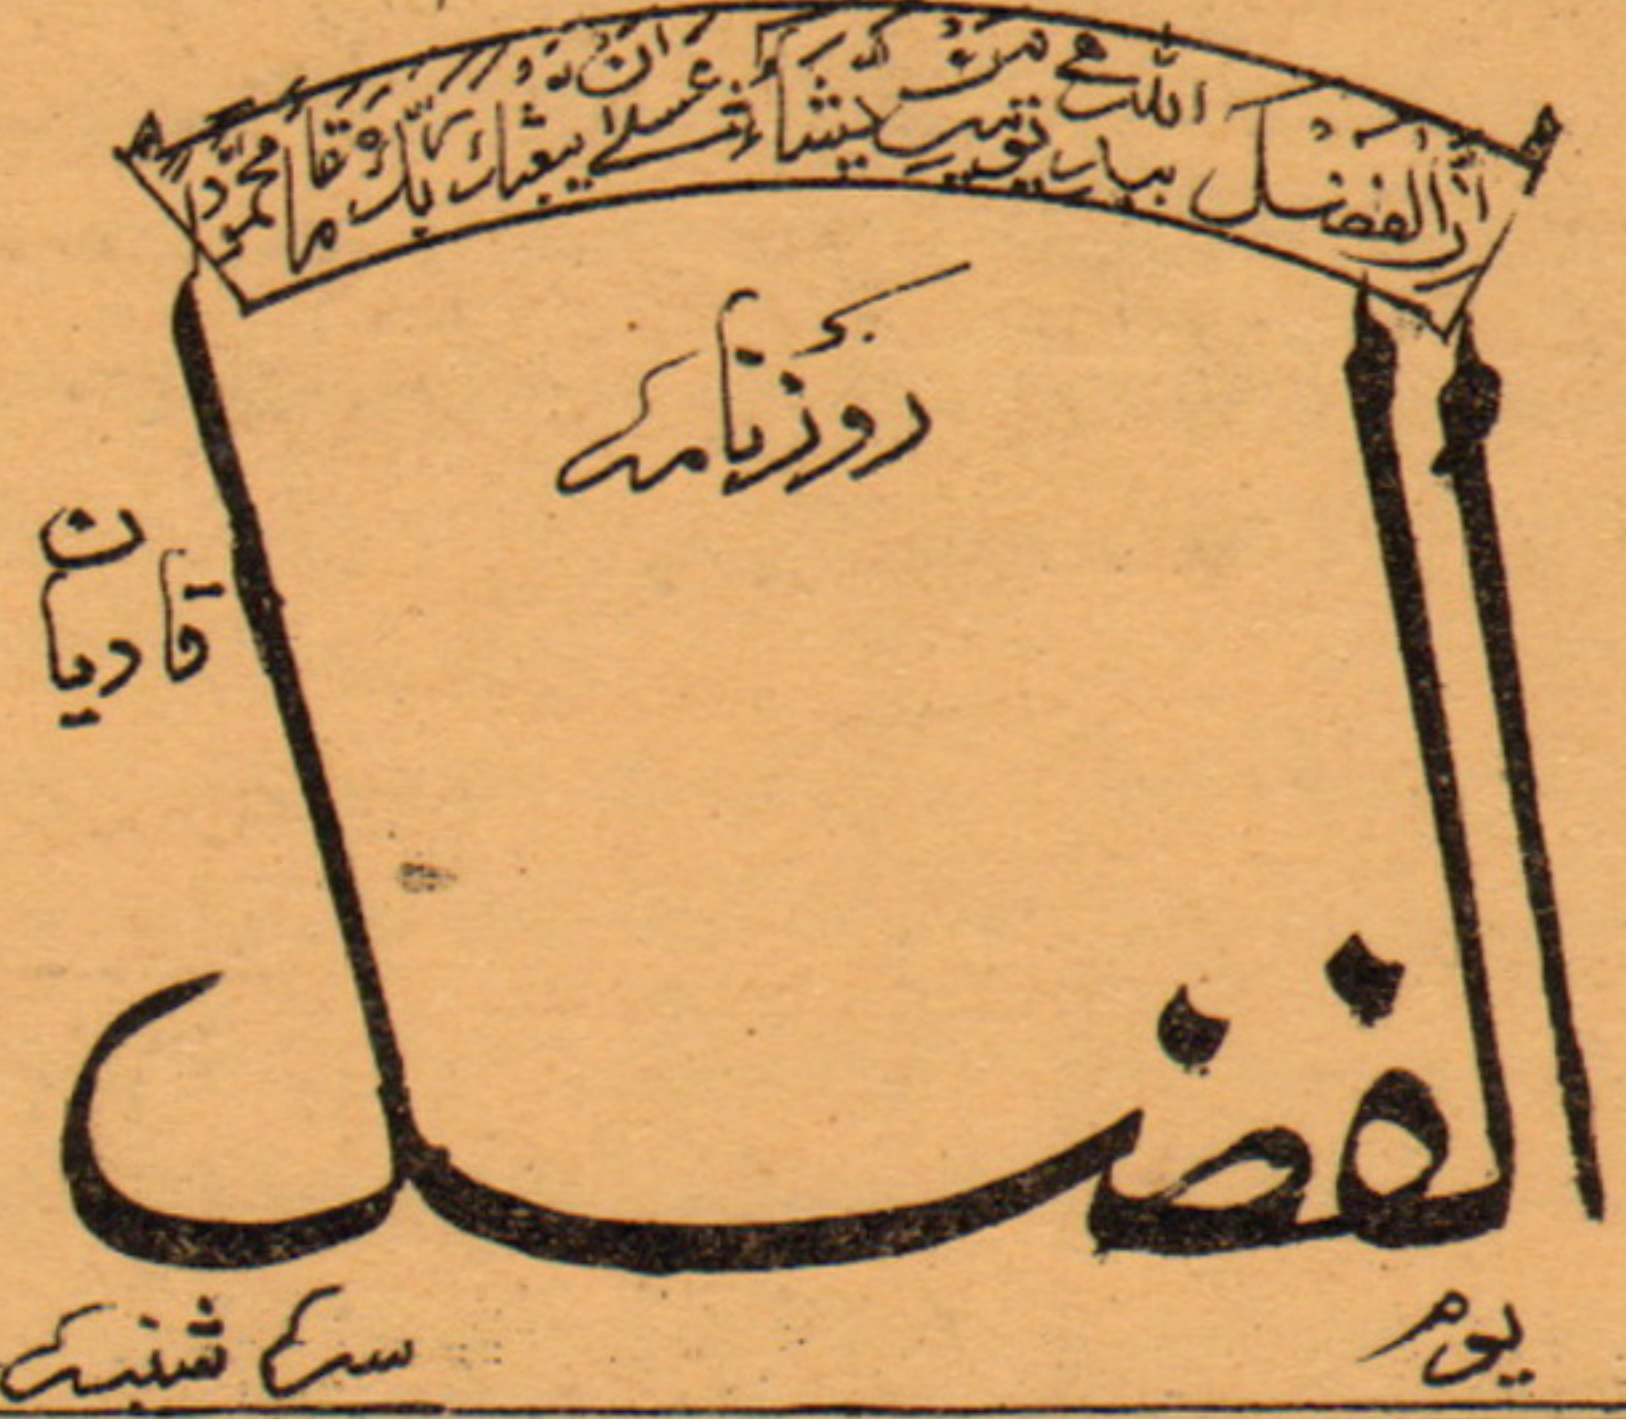 ان الفضل بيد الله يؤتيه من يشاء عسى ان يبعثك ربك مقاما محمودا
روزنامہ
قادیان
الفضل
یوم سہ شنبہ